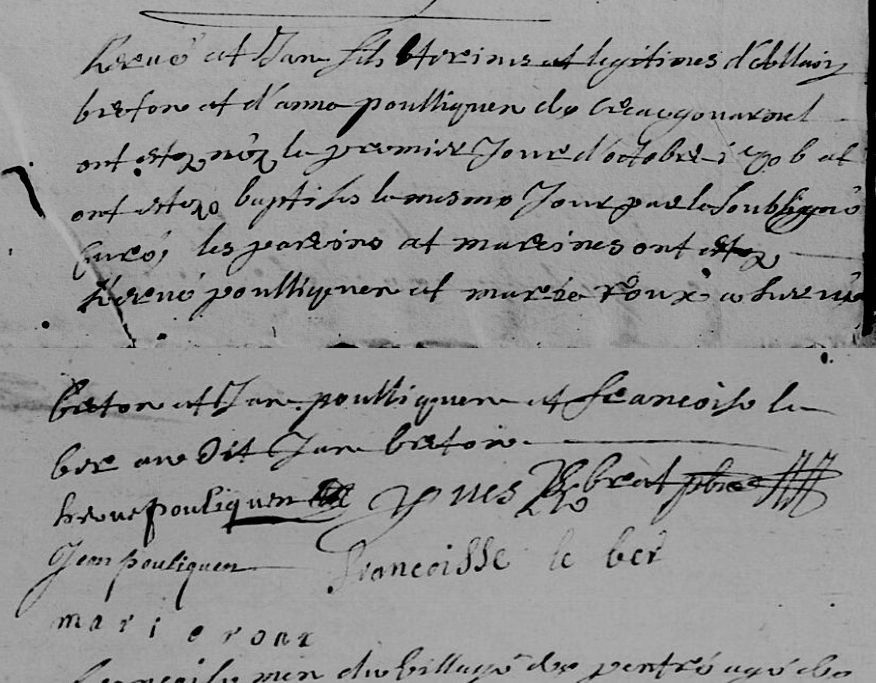 hervé et Jan fils uterins et legitimes d'ollivier
breton et d'anne poulliquen de creacgouarnel
ont estez néz le premier Jour d'octobre et
ont estez baptisés le mesme Jour par le soubsigné
Curé, les parrins et marrines ont estez
hervé poulliquen et marie roux a hervé
breton et Jan poulliquen et francoise le
ber au dit Jan breton
herve pouliquen yves pbre
Jean pouliquen francoisse le ber
marie roux
francoise du village de agé de